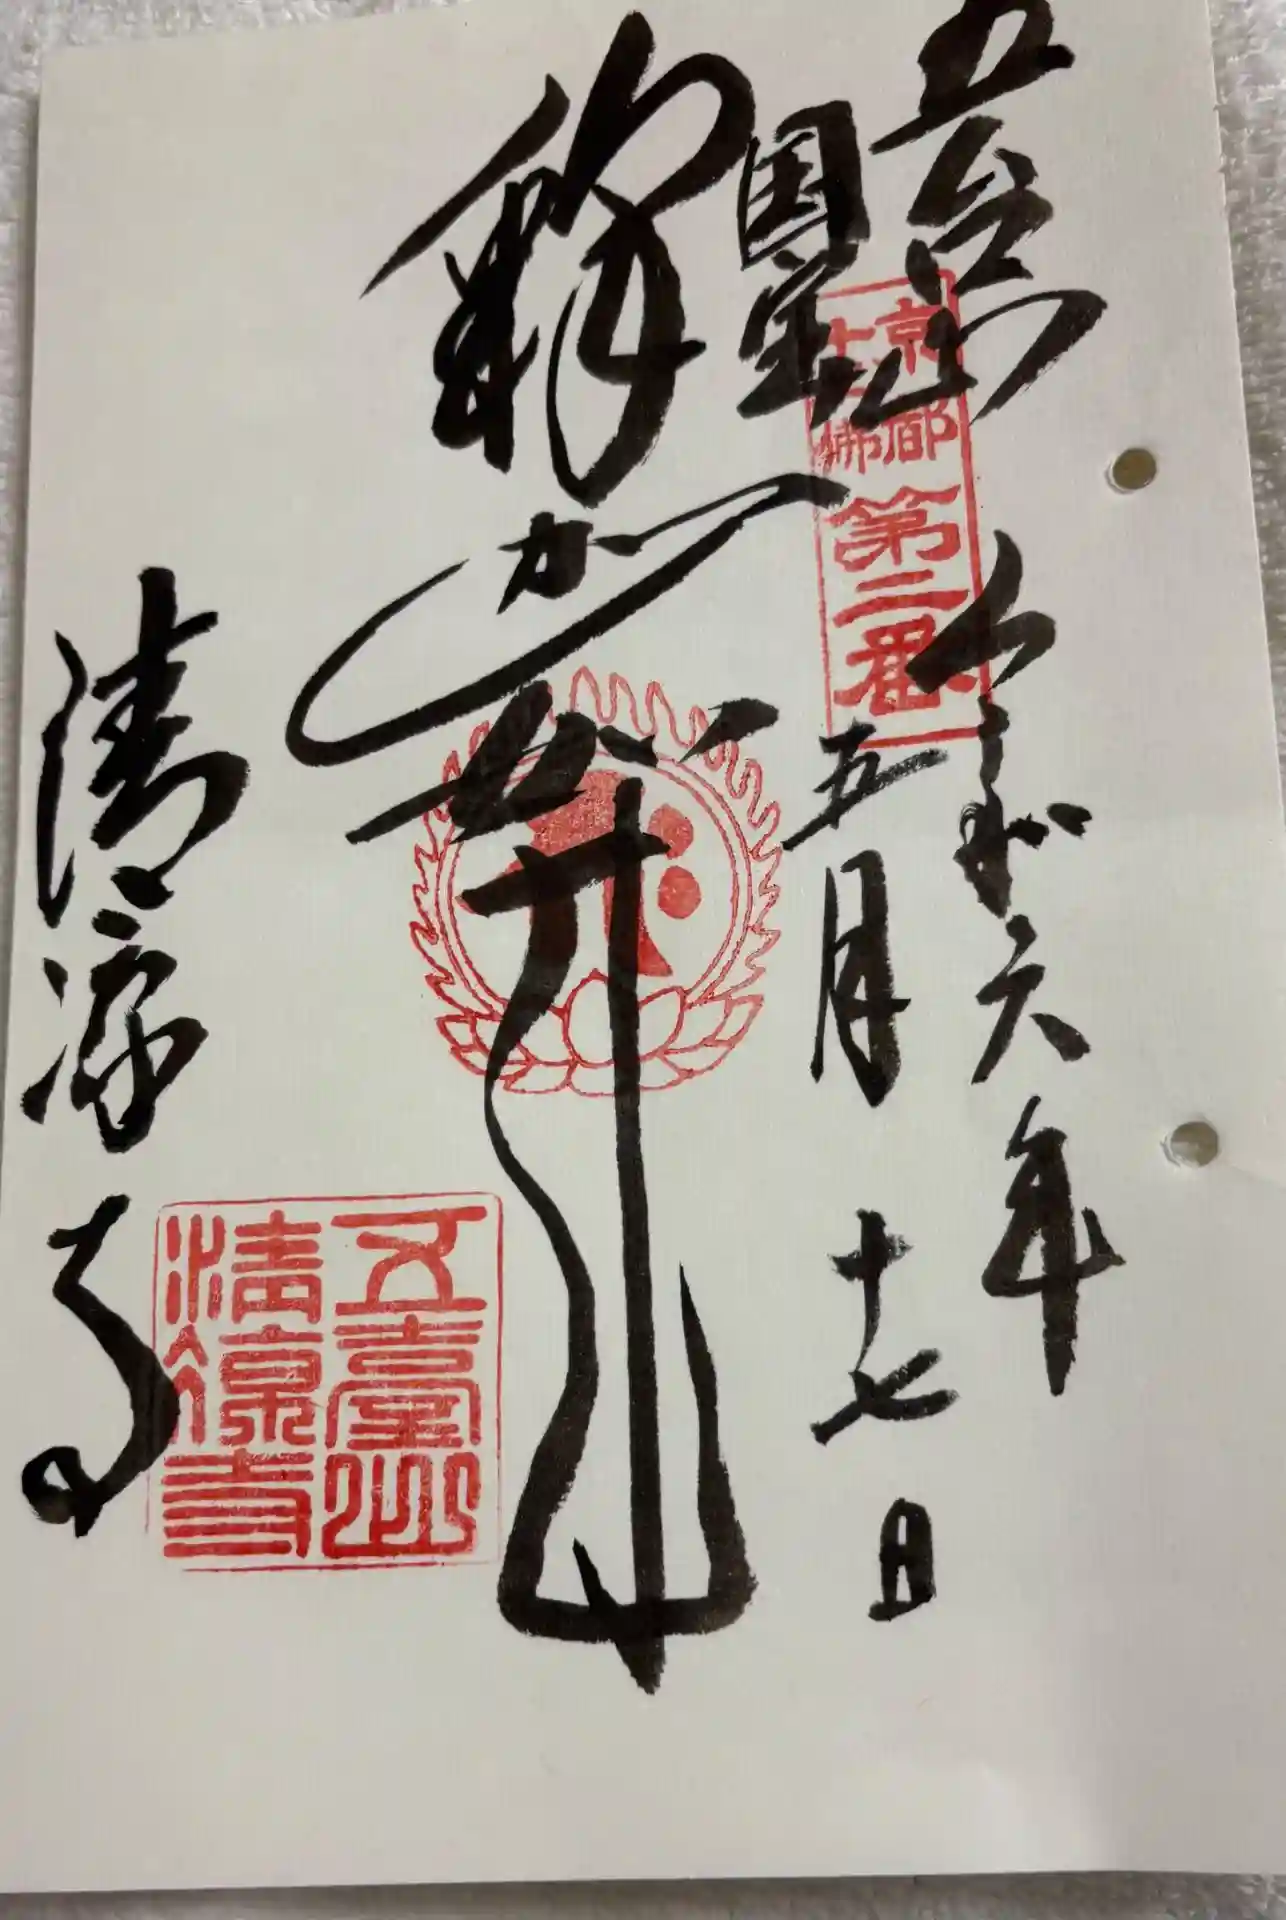 五台山
令和六年
国宝
五月十七日
釈迦如来
清凉寺
京都
十三佛
第二番
五臺山
清涼寺